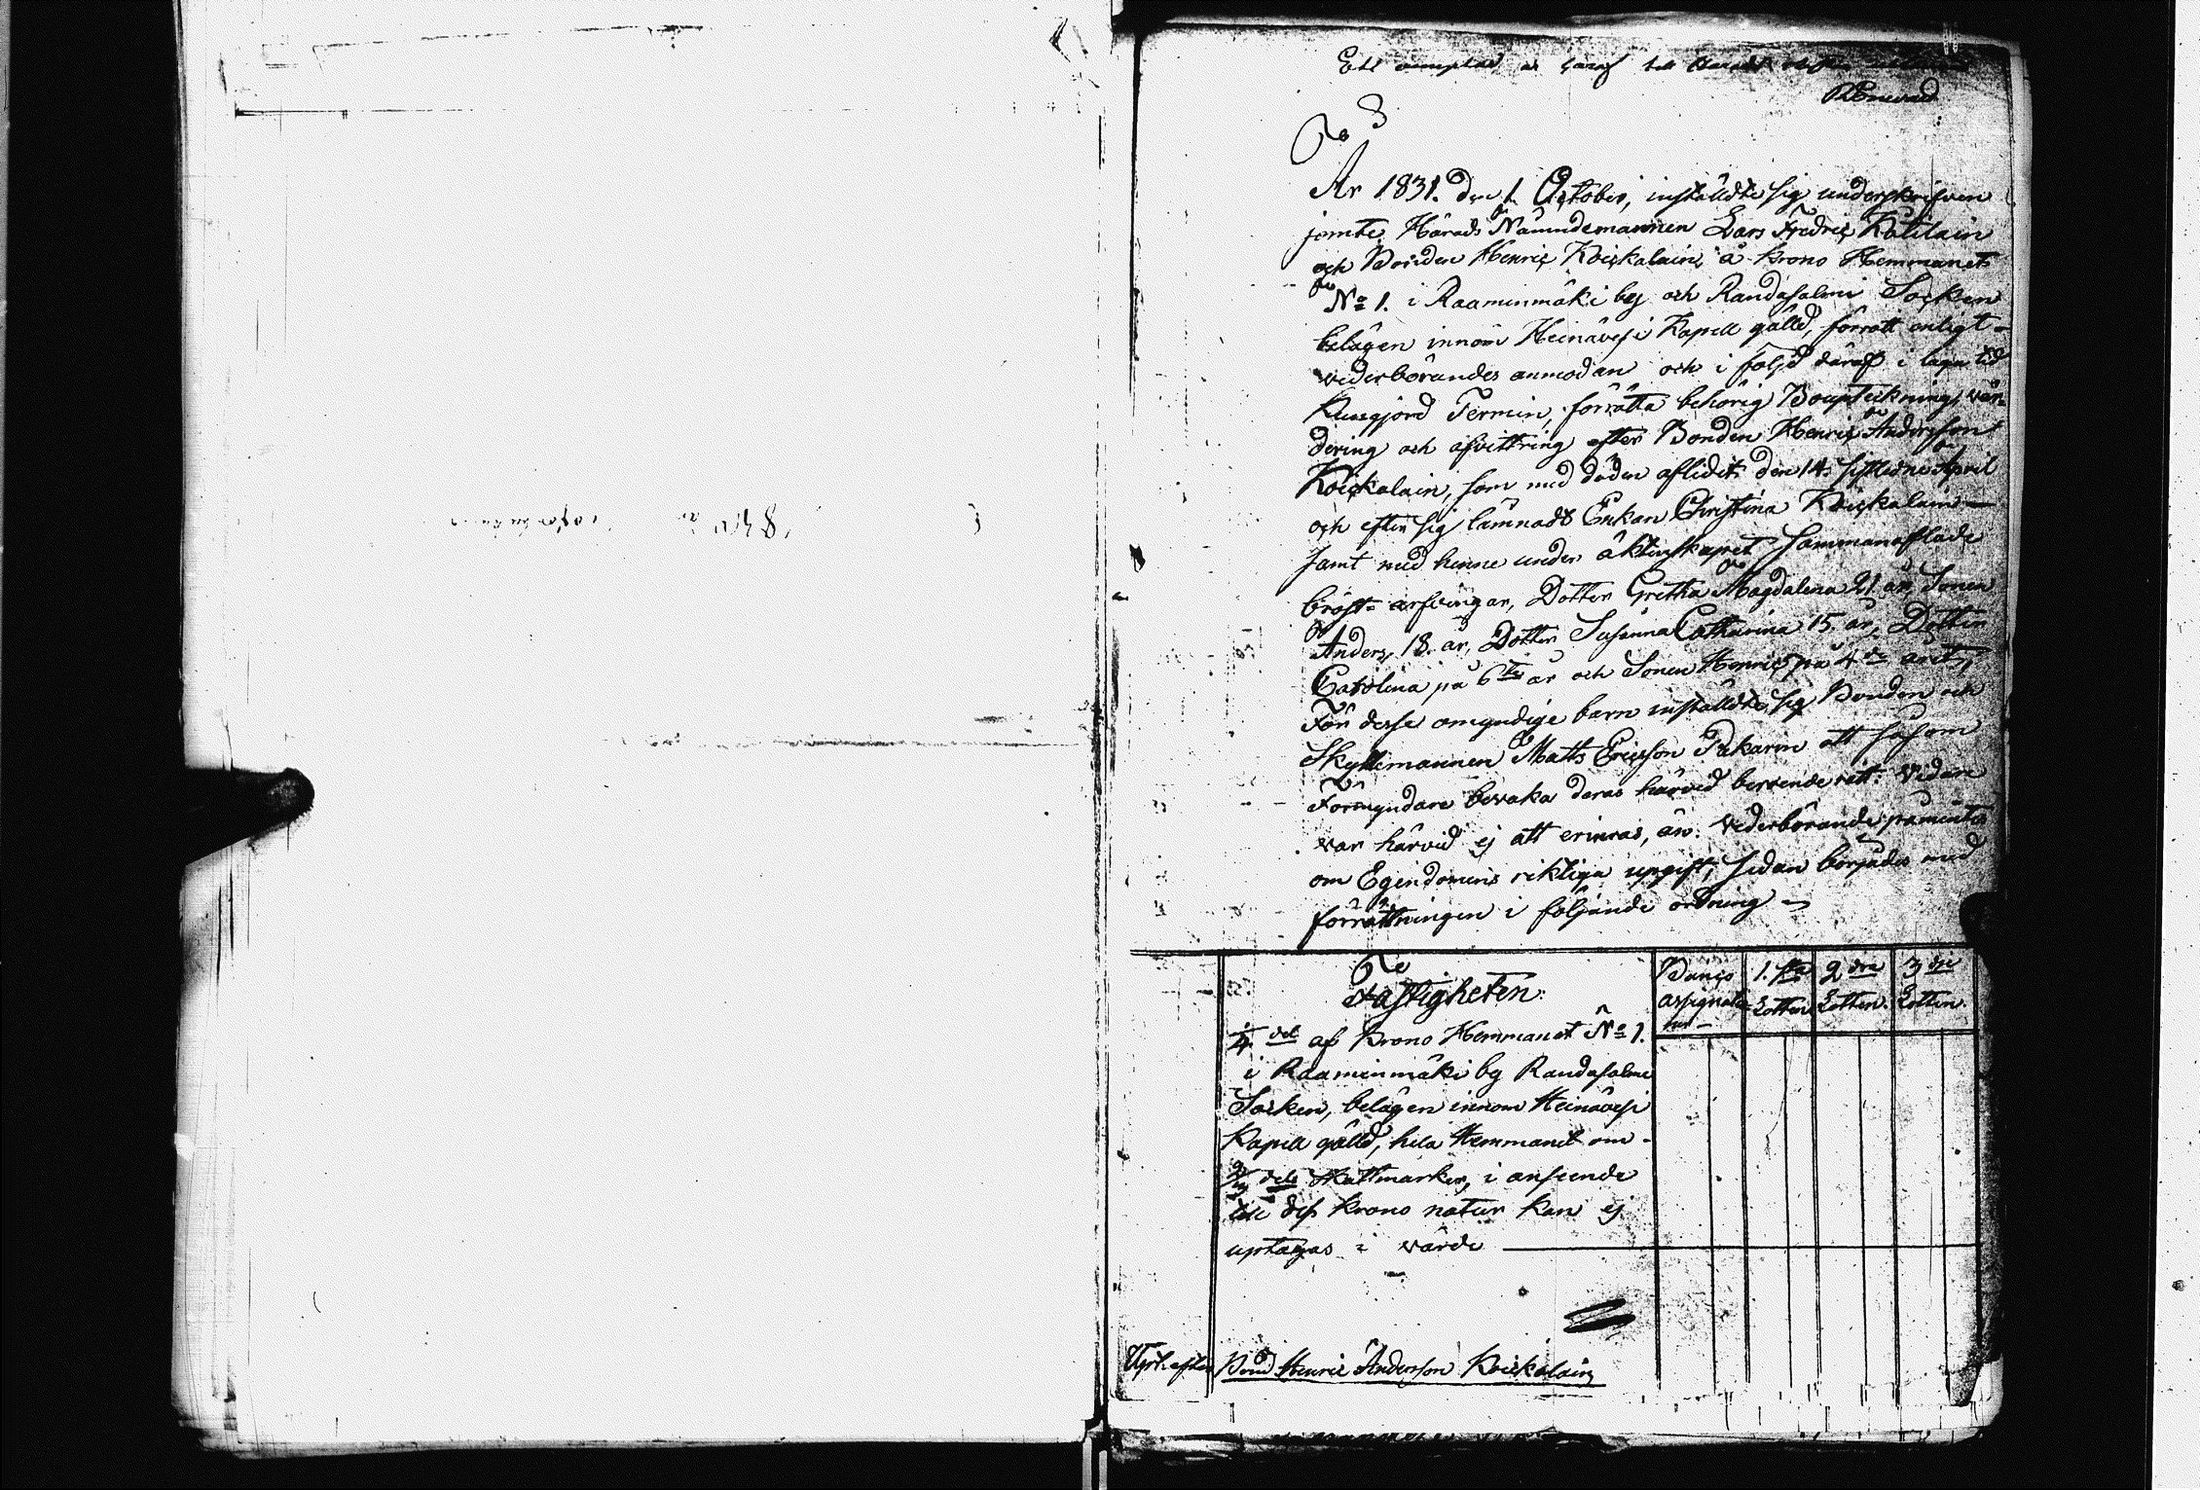 Ett exemplar är häraf till
År 1831. den 1. October, inställdte sig underskrifven
jemte Härads Nämndemannen Lars Fredric
och Bonden Henric Koickalain, å Krono Hemmanet
No 1. i Raaminmäki by och Randasalmi Socken
belägen innom Heinävesi Kapell gälld, för att enligt
vederbörandes anmodan och i följd däraf i laga tid
Kungjord Termin, förrätta behörig Bouptekning, vär-
dering och afvittring efter Bonden Henric Andersson
Koickalain, som med döden aflidit den 14. sistledne April
och efter sig lämnadt Enkan Christina Koickalain
samt med henne under äktenskapet sammanaflade
bröst-arfvingar, Dotter Gretha Magdalena 21 år, Sonen
Anders 18. år, Dotter Susanna Catharina 15. år, Dotter
Carolina på 6te år och Sonen Henric på 4de året,
För desse omyndige barn inställdte sig Bonden och
Matts Ericsson att såsom
Förmyndare bevaka deras härvid beroende rätt. Vidare
var härvid ej att erinras, än vederbörande påmintes
om Egendomens riktiga upgift, sedan börjades med
förrättningen i följande ordning
Fastigheten.
Banco assignationer
1.sta Lotten
2dre Lotten.
3dje Lotten.
1/4 del af Krono Hemmanet No 1.
i Raaminmäki by Randasalmi
Socken, belägen innom Heinävesi
Kapell gälld, hela Hemmanet om
dels Skattmarker, i anseende
till dess Krono natur kan ej
uptagas i värde
efter Bond Henric Andersson Koickalain